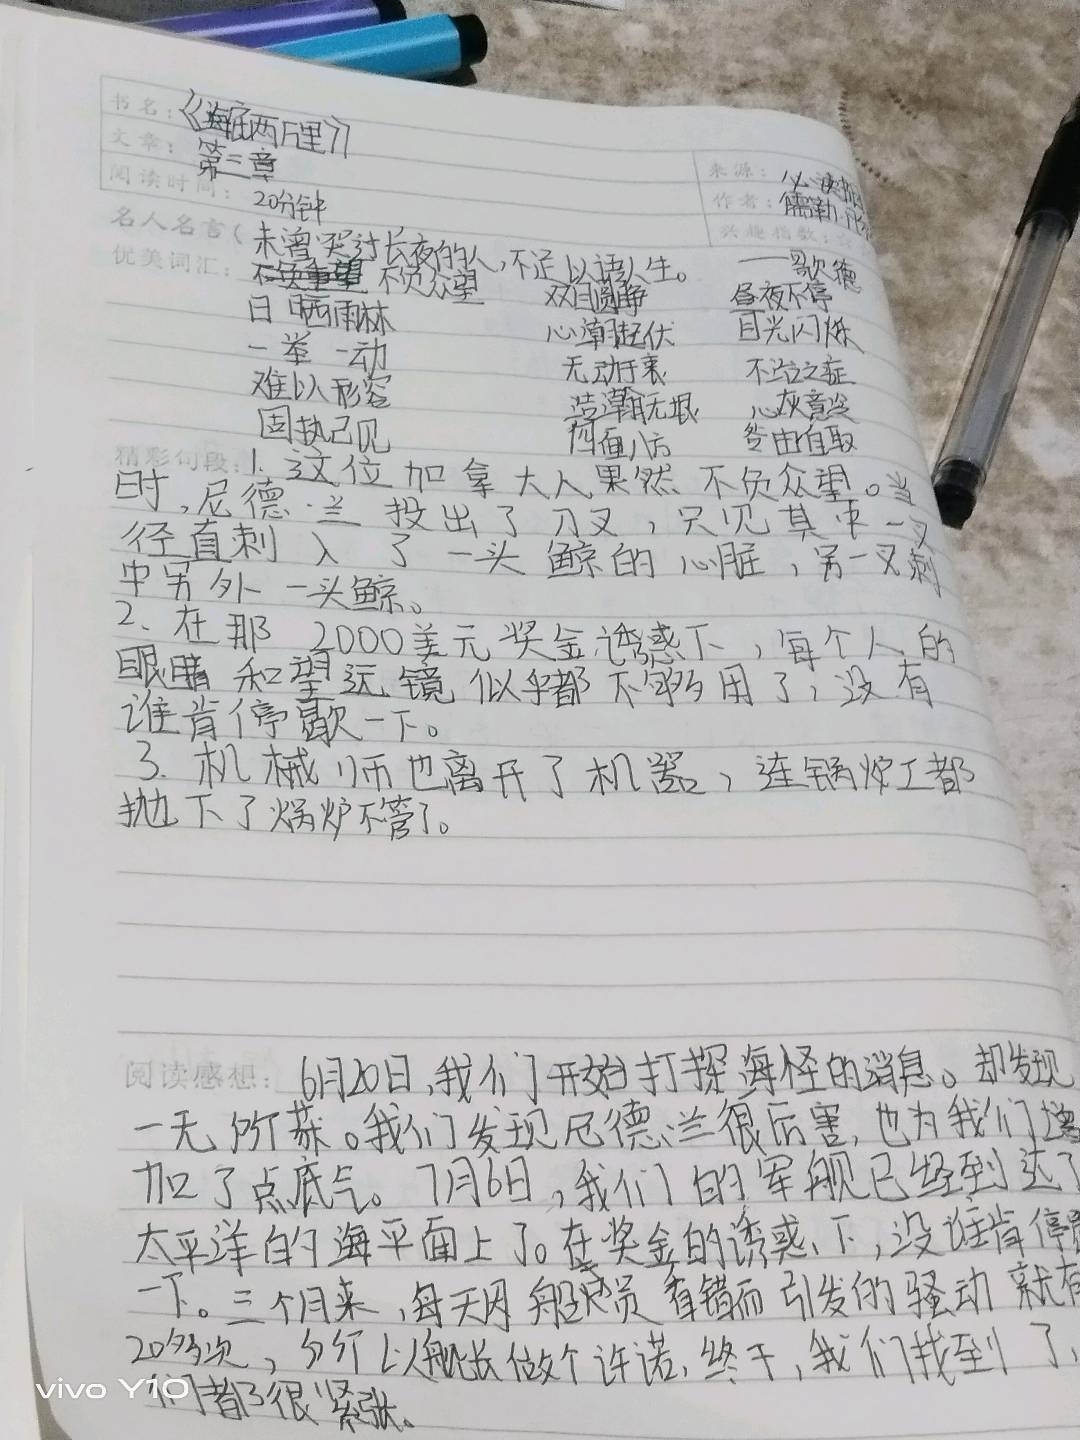 书名：《海底两万里》
文章：第三章
来源：必读
阅读时间：20分钟
作者：儒勒·凡
兴趣指数：
名人名言（未曾哭过长夜的人，不足以语人生。——歌德
优美词汇： 不负众望 双目圆睁 昼夜不停
日晒雨林 心潮起伏 目光闪烁
一举一动 无动于衷 不治之症
难以形容 浩瀚无垠 心灰意冷
固执己见 四面八方 咎由自取
精彩句段：1. 这位加拿大人果然不负众望。当
时，尼德·兰投出了刀叉，只见其中一叉
径直刺入了一头鲸的心脏，另一叉刺
中另外一头鲸。
2. 在那2000美元奖金诱惑下，每个人的
眼睛和望远镜似乎都不够用了，没有
谁肯停歇一下。
3. 机械师也离开了机器，连锅炉工都
抛下了锅炉不管了。
阅读感想：6月20日，我们开始打探海怪的消息。却发现
一无所获。我们发现尼德·兰很厉害，也为我们增
加了点底气。7月6日，我们的军舰已经到达了
太平洋的海平面上了。在奖金的诱惑下，没谁肯停歇
一下。三个月来，每天因船员看错而引发的骚动就有
20多次，所以舰长做个许诺，终于，我们找到了，
们都很紧张。
vivo Y10